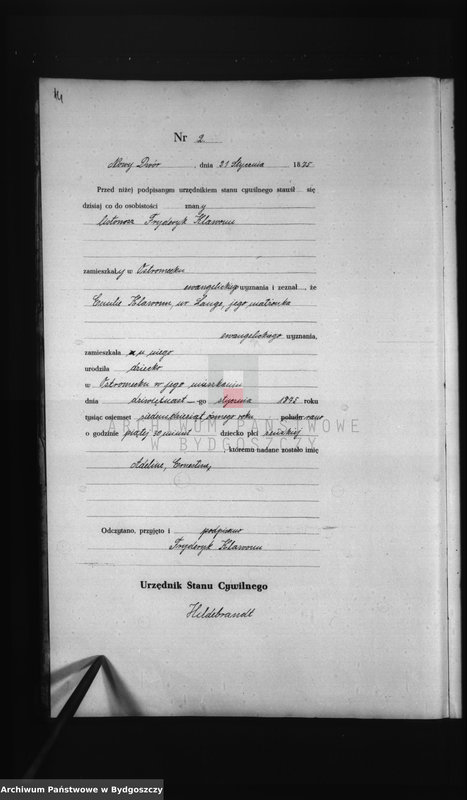 14
Nr 2.
Nowy Dwór, dnia 21 Stycznia 1875
Przed niżej podpisanym urzędnikiem stanu cywilnego stawił się
dzisiaj co do osobistości znany
listonosz Fryderyk Klawonn
zamieszkały w Ostromecku
ewangelickiego wyznania i zeznał, że
Emilia Klawonn, ur. Lange, jego małżonka
ewangelickiego wyznania,
zamieszkała u niego
urodziła dziecko
w Ostromecku w jego mieszkaniu
dnia -go stycznia roku
tysiąc osiemset siedemdziesiąt roku połudn rano
o godzinie piątej 30 minut dziecko płci żeńskiej
, któremu nadane zostało imię
Adeline, Ernestine,
Odczytano, przyjęto i podpisano
Fryderyk Klawonn
Urzędnik Stanu Cywilnego
Hildebrandt
ARCHIWUM PAŃSTWOWE
W BYDGOSZCZY
Archiwum Państwowe w Bydgoszczy